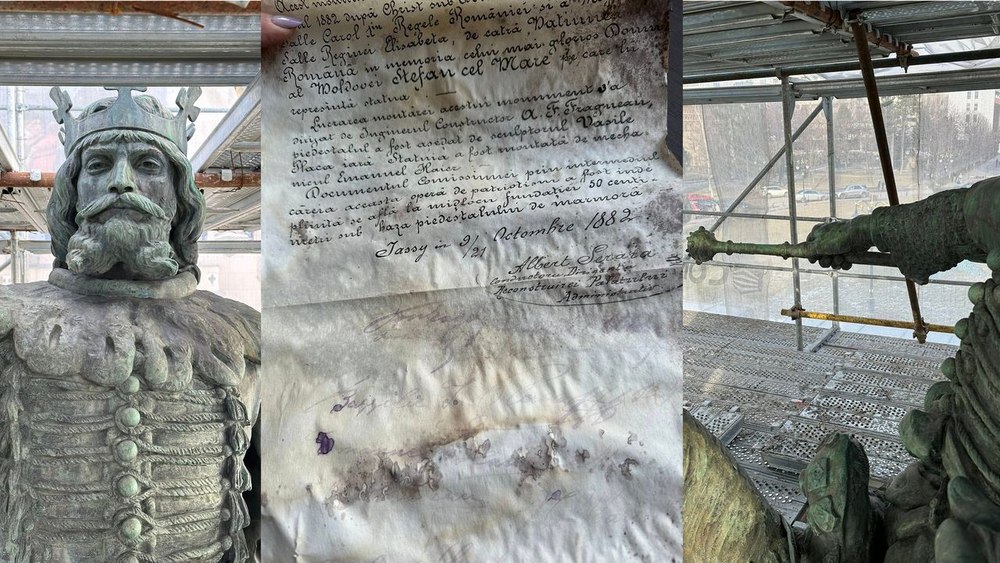 1882 după Christ sub
Salle Carol I^iu Regele României și a M
Salle Reginei Elisabeta, de catră Națiunea
Română in memoria celui mai glorios Domn
al Moldovei Ștefan cel Mare pe care lu
represintă statua.
Lucrarea montărei acestui monument s'a
dirijat de Inginerul Constructor A. F. Fragneau,
piedestalul a fost aședat de sculptorul Vasile
Placa iară Statuia a fost montată de mecha-
nicul Emanuel Haier
Documentul Comissiunei prin intermesiul
careia aceasta operă de patriotism a fost înde-
plinită se află la mijlocu fundației 50 centi
metri sub baza piedestalului de marmoră
Iassy in 9/21 Octombre 1882.
Albert Serafa
Reconstruirei Palatului
Administrativ